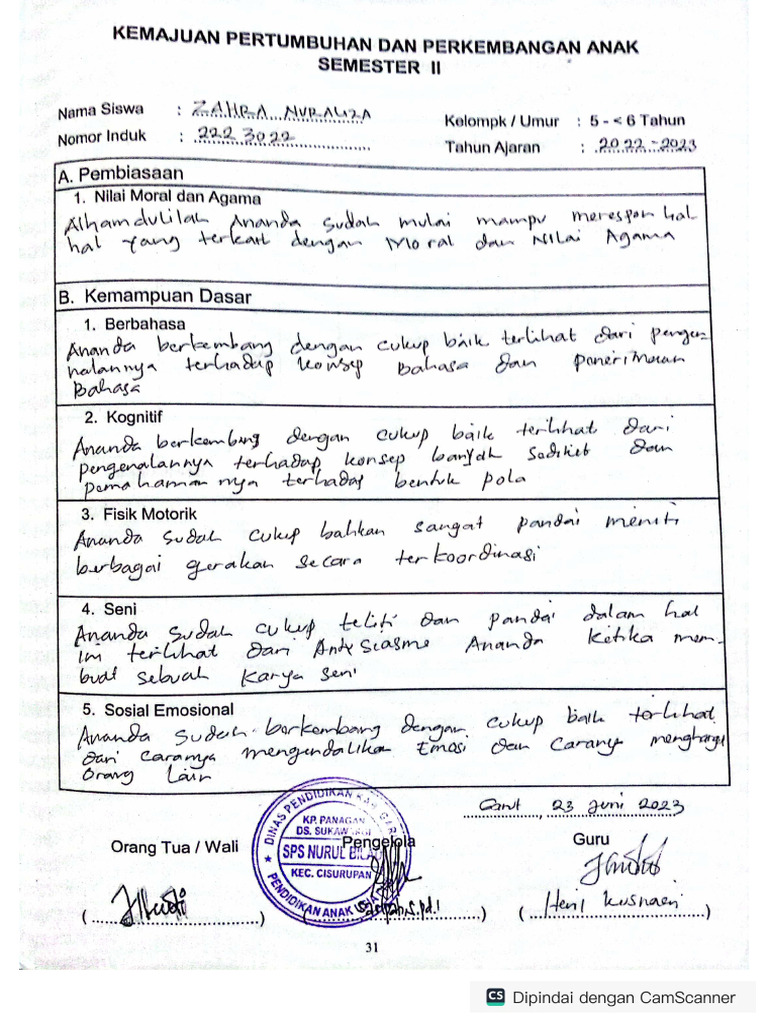 KEMAJUAN PERTUMBUHAN DAN PERKEMBANGAN ANAK
SEMESTER II
Nama Siswa : ZAHRA NURALIZA
Kelompk / Umur : 5 - < 6 Tahun
Nomor Induk : 222 3022
Tahun Ajaran : 2022 - 2023
A. Pembiasaan
1. Nilai Moral dan Agama
Alhamdulilah Ananda sudah mulai mampu merespon hal
hal yang terkait dengan Moral dan Nilai Agama
B. Kemampuan Dasar
1. Berbahasa
Ananda berkembang dengan cukup baik terlihat dari penge-
nalannya terhadap konsep Bahasa dan penerimaan
Bahasa
2. Kognitif
Ananda berkembang dengan cukup baik terlihat dari
pengenalannya terhadap konsep banyak sedikit dan
pemahamannya terhadap bentuk pola
3. Fisik Motorik
Ananda sudah cukup bahkan sangat pandai meniti
berbagai gerakan secara terkoordinasi
4. Seni
Ananda sudah cukup teliti dan pandai dalam hal
ini terlihat dari Antusiasme Ananda ketika mem-
buat sebuah karya seni
5. Sosial Emosional
Ananda sudah berkembang dengan cukup baik terlihat
dari caranya mengendalikan Emosi dan carany menghargai
Orang Lain
Garut, 23 Juni 2023
Orang Tua / Wali
Pengelola
Guru
DINAS PENDIDIKAN KAB
KP. PANAGAN
DS. SUKAWARGI
SPS NURUL BILAD
KEC. CISURUPAN
PENDIDIKAN ANAK USIA
S.Pd.I
Heni Kusnaeni
31
CS Dipindai dengan CamScanner